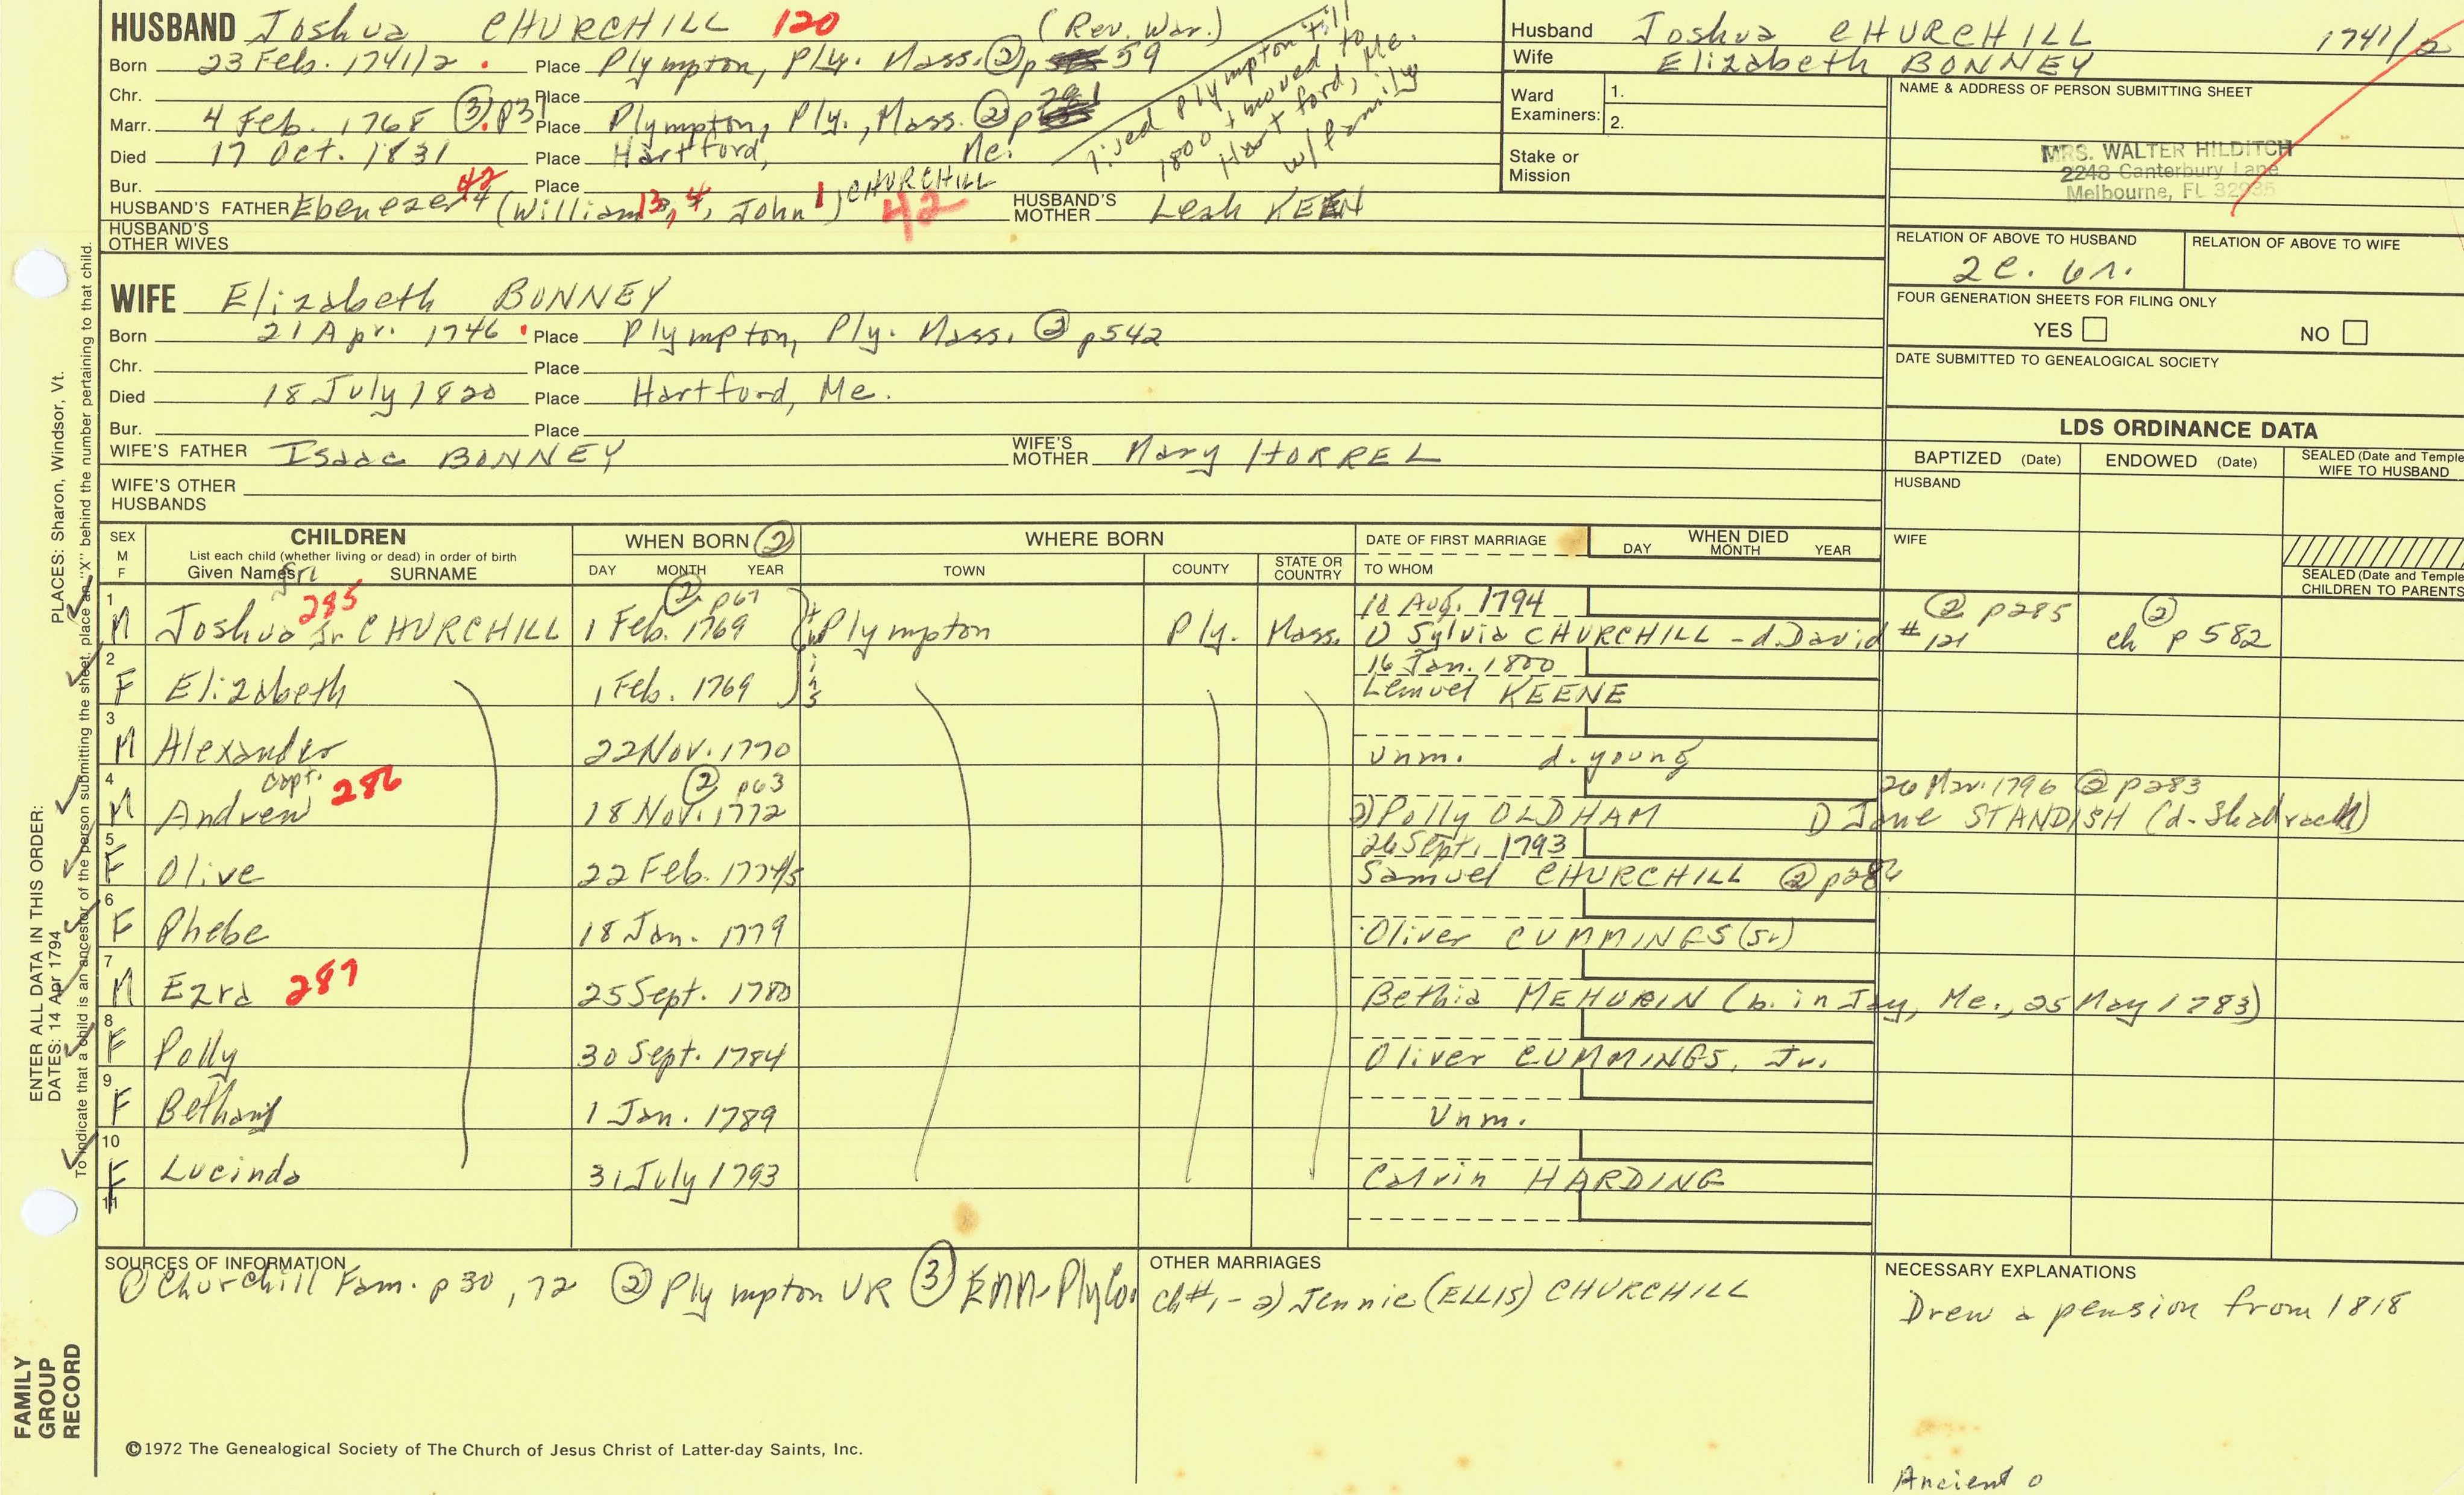 HUSBAND Joshua CHURCHILL 120 (Rev. War.)
Born 23 Feb. 1741/2 . Place Plympton, Ply. Mass. ② p 59
Chr. Place
Marr. 4 Feb. 1768 ③ . p31 Place Plympton, Ply., Mass. ② p
Died 17 Oct. 1831 Place Hartford, Me.
Bur. Place
HUSBAND'S FATHER Ebenezer 4 42 (William 13, 4, John 1) CHURCHILL 42 HUSBAND'S MOTHER Leah KEEN
HUSBAND'S OTHER WIVES
lived Plympton till
1800 + moved to
Hartford, Me.
w/family
Husband Joshua CHURCHILL 1741/2
Wife Elizabeth BONNEY
Ward Examiners: 1.
2.
Stake or Mission
NAME & ADDRESS OF PERSON SUBMITTING SHEET
MRS. WALTER HILDITCH
2248 Canterbury Lane
Melbourne, FL 32935
RELATION OF ABOVE TO HUSBAND RELATION OF ABOVE TO WIFE
2c. 6r.
FOUR GENERATION SHEETS FOR FILING ONLY
YES NO
DATE SUBMITTED TO GENEALOGICAL SOCIETY
WIFE Elizabeth BONNEY
Born 21 Apr. 1746 . Place Plympton, Ply. Mass. ② p542
Chr. Place
Died 18 July 1820 Place Hartford, Me.
Bur. Place
WIFE'S FATHER Isaac BONNEY WIFE'S MOTHER Mary HORREL
WIFE'S OTHER HUSBANDS
LDS ORDINANCE DATA
BAPTIZED (Date) ENDOWED (Date) SEALED (Date and Temple) WIFE TO HUSBAND
HUSBAND
WIFE
SEALED (Date and Temple) CHILDREN TO PARENTS
SEX M F CHILDREN List each child (whether living or dead) in order of birth Given Names SURNAME
WHEN BORN ② DAY MONTH YEAR
WHERE BORN TOWN COUNTY STATE OR COUNTRY
DATE OF FIRST MARRIAGE TO WHOM
WHEN DIED DAY MONTH YEAR
1 M Joshua Jr. CHURCHILL 285 1 Feb. 1769 ② p67 twins Plympton Ply. Mass. 10 Aug. 1794 1) Sylvia CHURCHILL - d. David #121 ② p285 ch ② p 582
2 F Elizabeth 1 Feb. 1769 16 Jan. 1800 Lemuel KEENE
3 M Alexander 22 Nov. 1770 unm. d. young
4 M Capt. Andrew 286 18 Nov. 1772 ② p63 2) Polly OLDHAM 26 Mar. 1796 ② p283 1) Jane STANDISH (d. Shadrach)
5 F Olive 22 Feb. 1774/5 26 Sept. 1793 Samuel CHURCHILL ② p286
6 F Phebe 18 Jan. 1779 Oliver CUMMINGS (Sr)
7 M Ezra 287 25 Sept. 1780 Bethia MEHURIN (b. in Jay, Me., 25 May 1783)
8 F Polly 30 Sept. 1784 Oliver CUMMINGS, Jr.
9 F Bethany 1 Jan. 1789 Unm.
10 F Lucinda 31 July 1793 Calvin HARDING
11
SOURCES OF INFORMATION
① Churchill Fam. p30, 72 ② Plympton VR ③ EMM-PlyCo.
OTHER MARRIAGES
Ch#1- 2) Jennie (ELLIS) CHURCHILL
NECESSARY EXPLANATIONS
Drew a pension from 1818
Ancient o
©1972 The Genealogical Society of The Church of Jesus Christ of Latter-day Saints, Inc.
FAMILY GROUP RECORD
ENTER ALL DATA IN THIS ORDER:
DATES: 14 Apr 1794
PLACES: Sharon, Windsor, Vt.
To indicate that a child is an ancestor of the person submitting the sheet, place an "X" behind the number pertaining to that child.